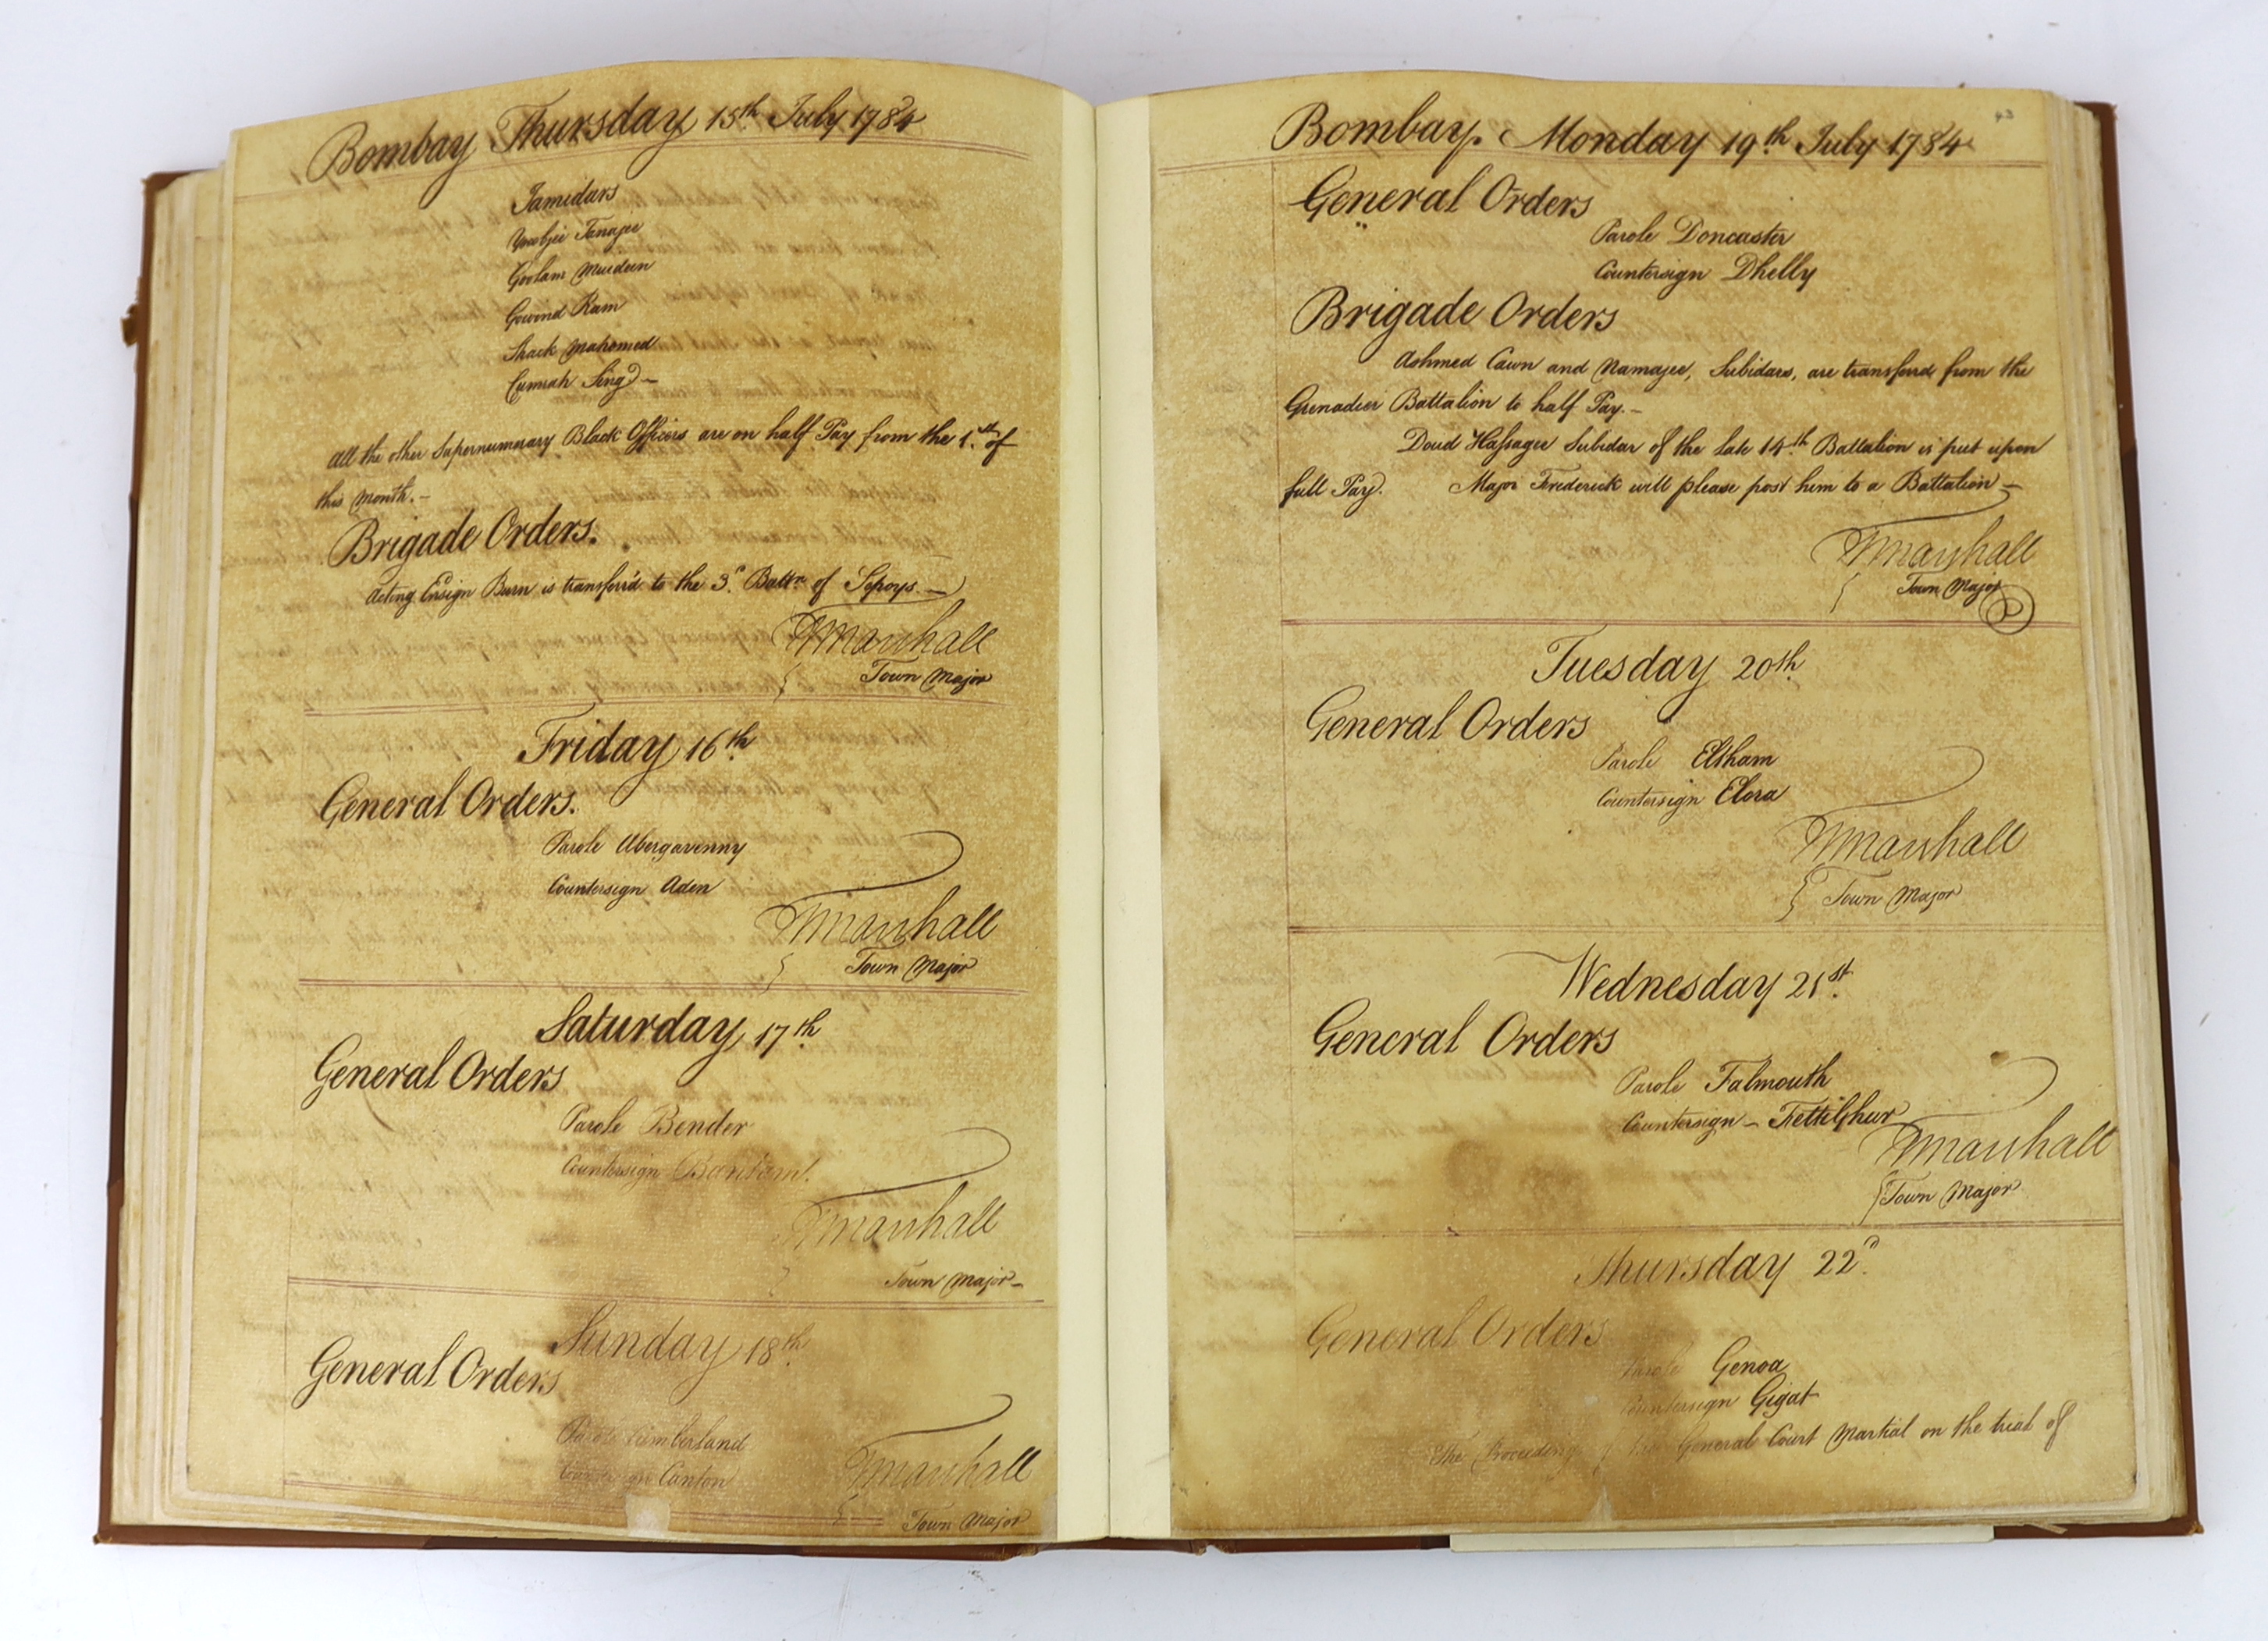 Bombay Thursday 15th July 1784
Jamidars
Goolam
Govind Ram
Shaik Mahomed
Cumrah Sing
All the other Supernumerary Black Officers are on half Pay from the 1.st of
this Month.–
Brigade Orders.
Acting Ensign Burn is transferr'd to the 3.d Battn. of Sepoys.–
Marshall
Town Major
Friday 16th
General Orders.
Parole Abergavenny
Countersign Aden
Marshall
Town Major
Saturday 17th
General Orders
Parole Bender
Countersign Bantam.
Marshall
Town Major–
Sunday 18th
General Orders
Parole Cumberland
Countersign Canton
Marshall
Town Major
Bombay. Monday 19th July 1784
General Orders
Parole Doncaster
Countersign Dhelly
Brigade Orders
Ashmed Cawn and Ramajee, Subidars, are transferrd from the
Grenadier Battalion to half Pay.–
Doud Hassagee Subidar of the late 14th Battalion is put upon
full Pay. Major Frederick will please post him to a Battalion–
Marshall
Town Major
Tuesday 20th
General Orders
Parole Eltham
Countersign Elora
Marshall
Town Major
Wednesday 21st
General Orders
Parole Falmouth
Countersign –
Marshall
Town Major
Thursday 22d
General Orders
Parole Genoa
Countersign Gigat
The Proceedings of the General Court Martial on the trial of